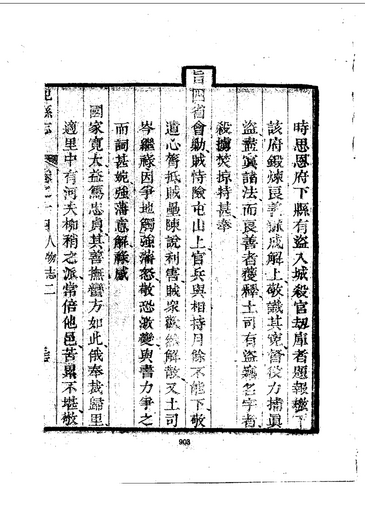 時思恩府下縣有盜入城殺官刧庫者題報檄下
該府鍛煉良善誣成解上敬識其寃督役方捕眞
盜盡寘諸法而良善者獲釋土司有盜竊名字者
殺擄焚掠特甚奉
旨四省會勦賊恃險屯山上官兵與相持月餘不能下敬
遣心膂抵賊壘陳說利害賊衆歡然解散又土司
岑繼祿因爭地觸強藩怒敬恐激變與書力爭之
而詞甚婉強藩意解祿感
國家寬大益篤忠貞其善撫蠻方如此俄奉裁歸里
適里中有河夫柳稍之派常倍他邑苦累不堪敬
縣志 卷之十四 人物志二
903